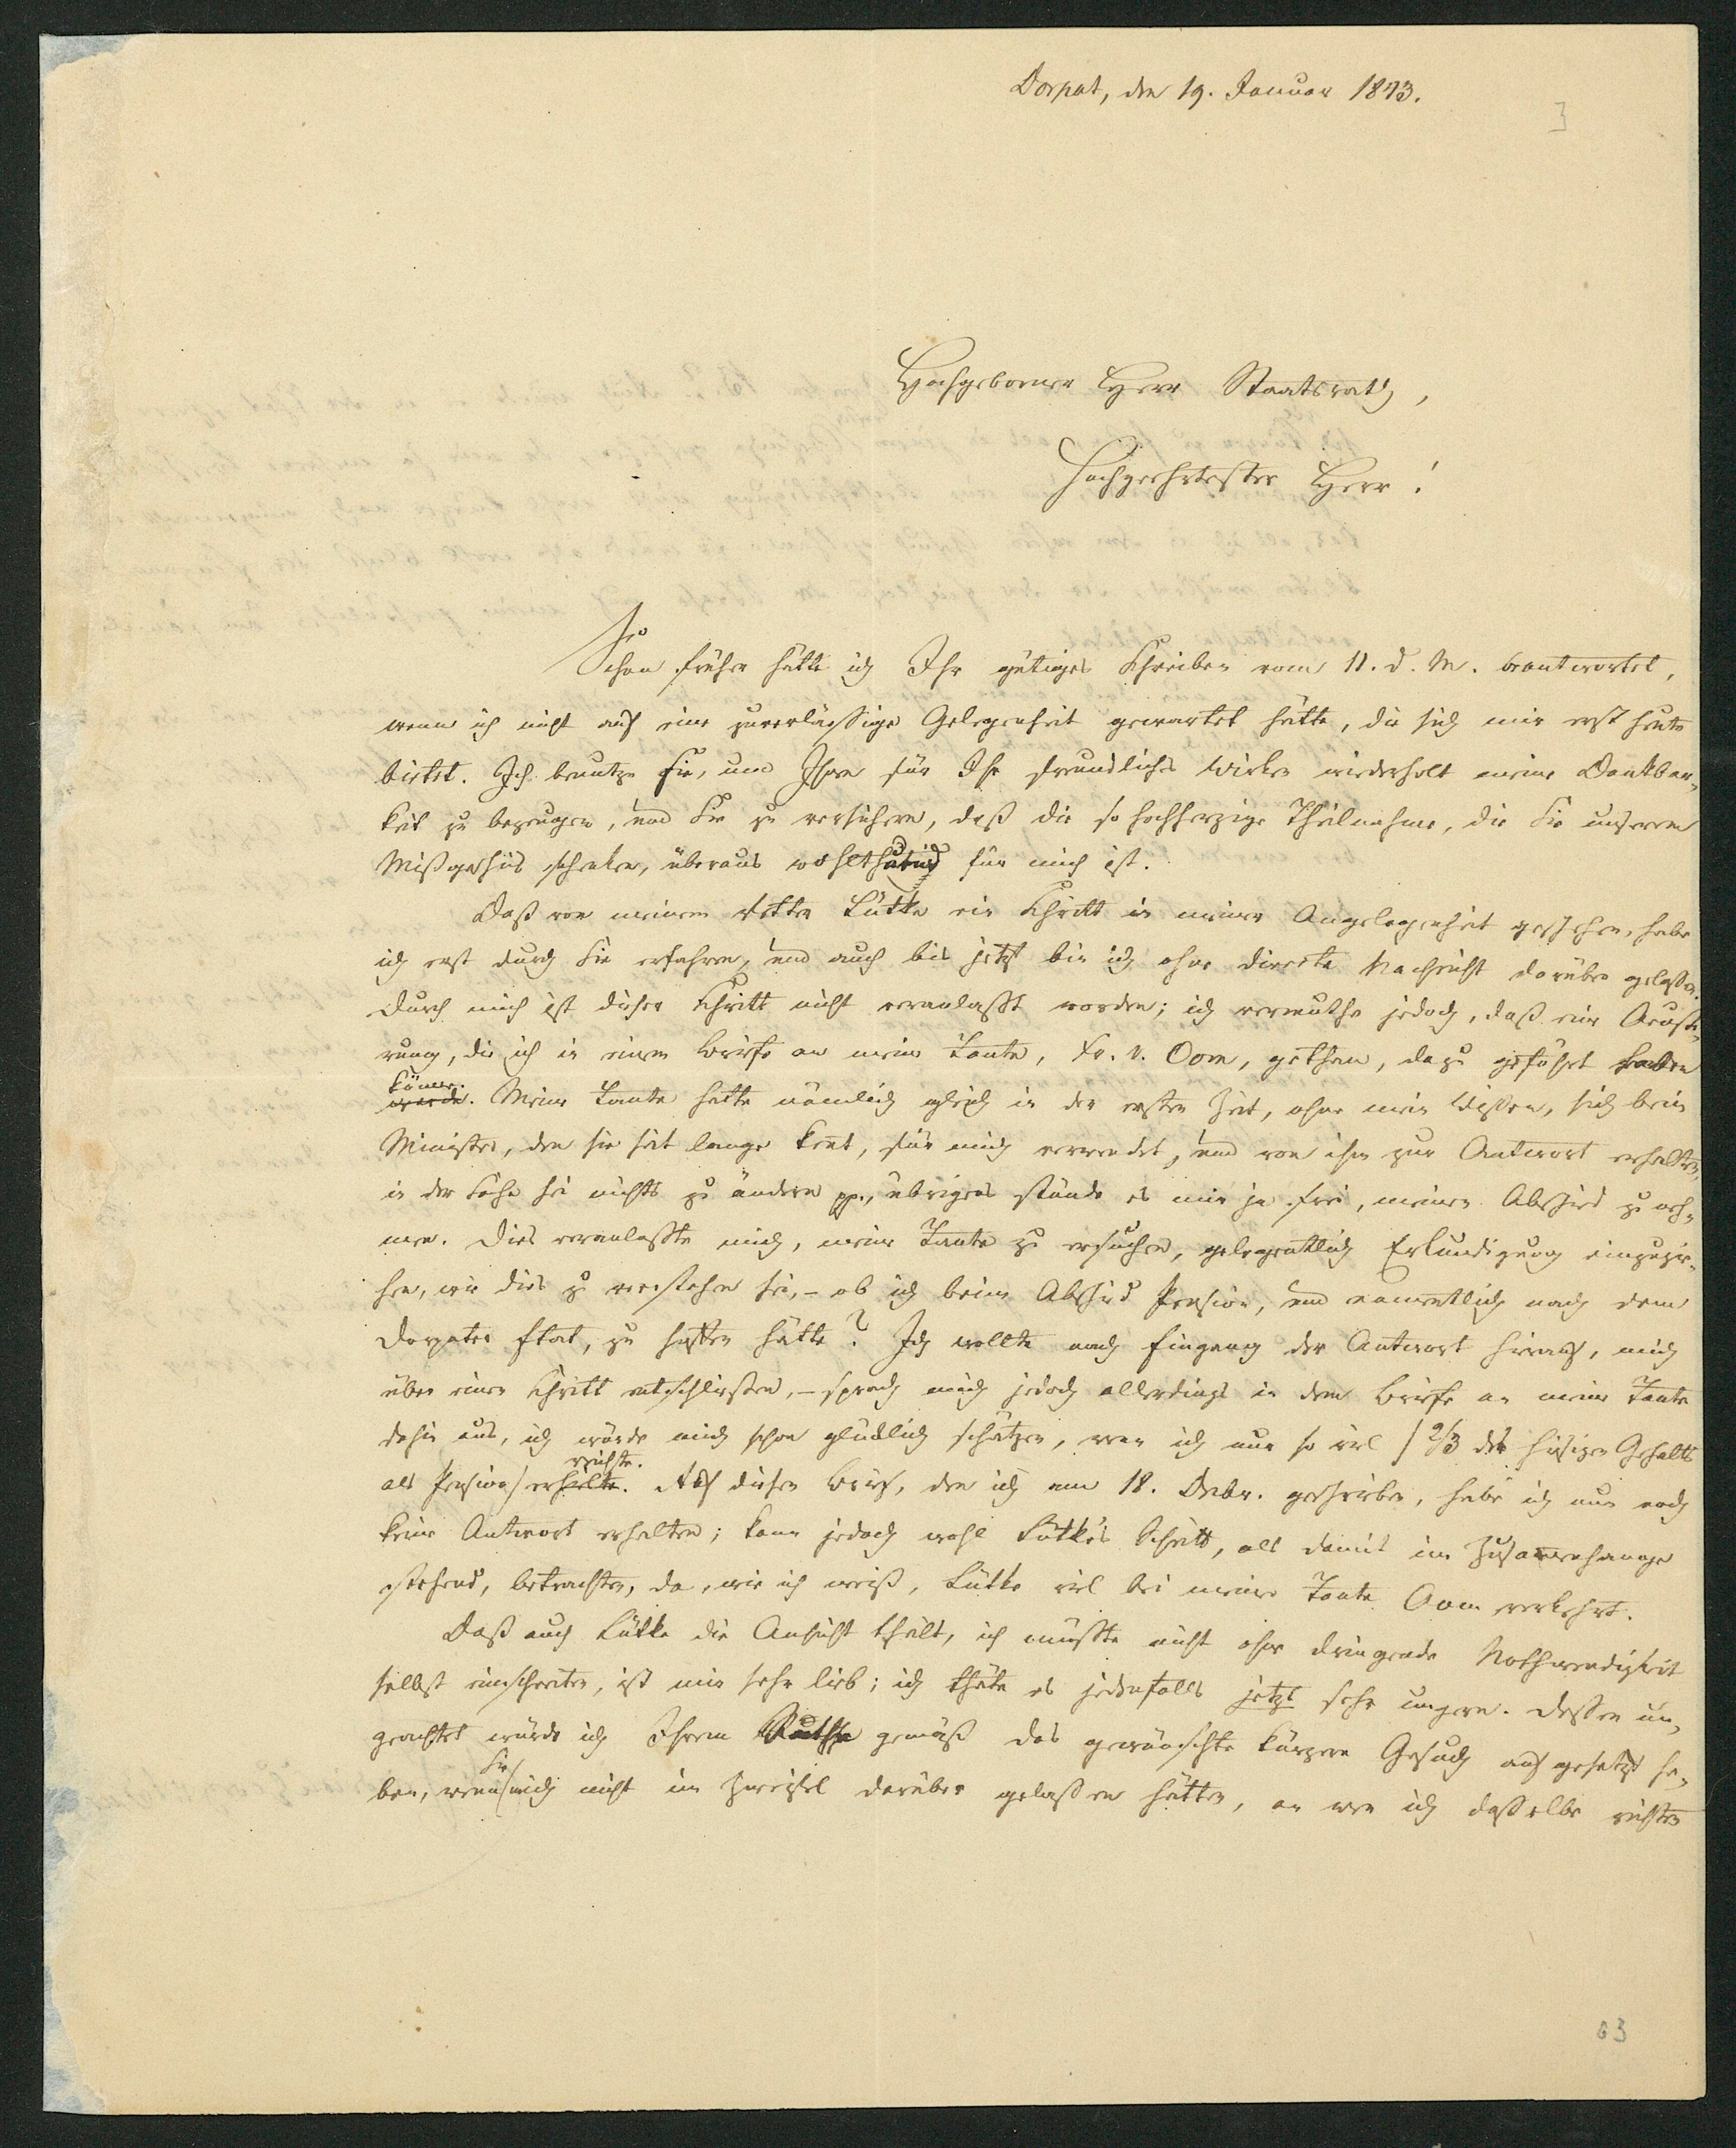 Dorpat, den 19. Januar 1843.
3
Hochgeborner Herr Staatsrath,
Hochgeehrtester Herr!
Schon früher hätte ich Ihr gütiges Schreiben vom 11. d. M. beantwortet,
wenn ich nicht auf eine zuverlässige Gelegenheit gewartet hätte, die sich mir erst heute
bietet. Ich benutze sie, um Ihnen für Ihr freundliches Wirken wiederholt meine Dankbar-
keit zu bezeugen, und Sie zu versichern, daß die so hochherzige Theilnahme, die Sie unserem
Mißgeschick schenken, überaus wohlthuend für mich ist.
Daß von meinem Vetter Lütke ein Schritt in meiner Angelegenheit geschehen, habe
ich erst durch Sie erfahren, und auch bis jetzt bin ich ohne directe Nachricht darüber gelassen.
Durch mich ist dieser Schritt nicht veranlaßt worden; ich vermuthe jedoch, daß eine Aeuße-
rung, die ich in einem Briefe an meine Tante, Fr. v. Oom, gethan, dazu geführt haben
könne.
werde. Meine Tante hatte nämlich gleich in der ersten Zeit, ohne mein Wissen, sich beim
Minister, den sie seit lange kent, für mich verwendet, und von ihm zur Antwort erhalten,
in der Sache sei nichts zu ändern pp., übrigens stände es mir ja frei, meinen Abschied zu neh-
men. Dies veranlaßte mich, meine Tante zu ersuchen, gelegentlich Erkundigung einzuzie-
hen, wie dies zu verstehen sei, – ob ich beim Abschied Pension, und namentlich nach dem
Dorpater Etat, zu hoffen hätte? Ich wollte nach Eingang der Antwort hierauf, mich
über einen Schritt entschließen, – sprach mich jedoch allerdings in dem Briefe an meine Tante
dahin aus, ich würde mich schon glücklich schätzen, wen ich nur so viel / 2/3 des hiesigen Gehalts
reichte.
als Pension/ erhielte. Auf diesen Brief, den ich am 18. Decbr. geschrieben, habe ich nun noch
keine Antwort erhalten; kann jedoch wohl Lütke's Schritt, als damit im Zusamenhange
stehend, betrachten, da, wie ich weiß, Lütke viel bei meiner Tante Oom verkehrt.
Daß auch Lütke die Ansicht theilt, ich müßte nicht ohne dringende Nothwendigkeit
selbst einschreiten, ist mir sehr lieb; ich thäte es jedenfalls jetzt sehr ungern. Dessen un-
geachtet würde ich Ihrem Rathe gemäß das gewünschte kürzere Gesuch auf gesetzt ha-
Sie
ben, wenn mich nicht im Zweifel darüber gelassen hätten, an wen ich dasselbe richten
63